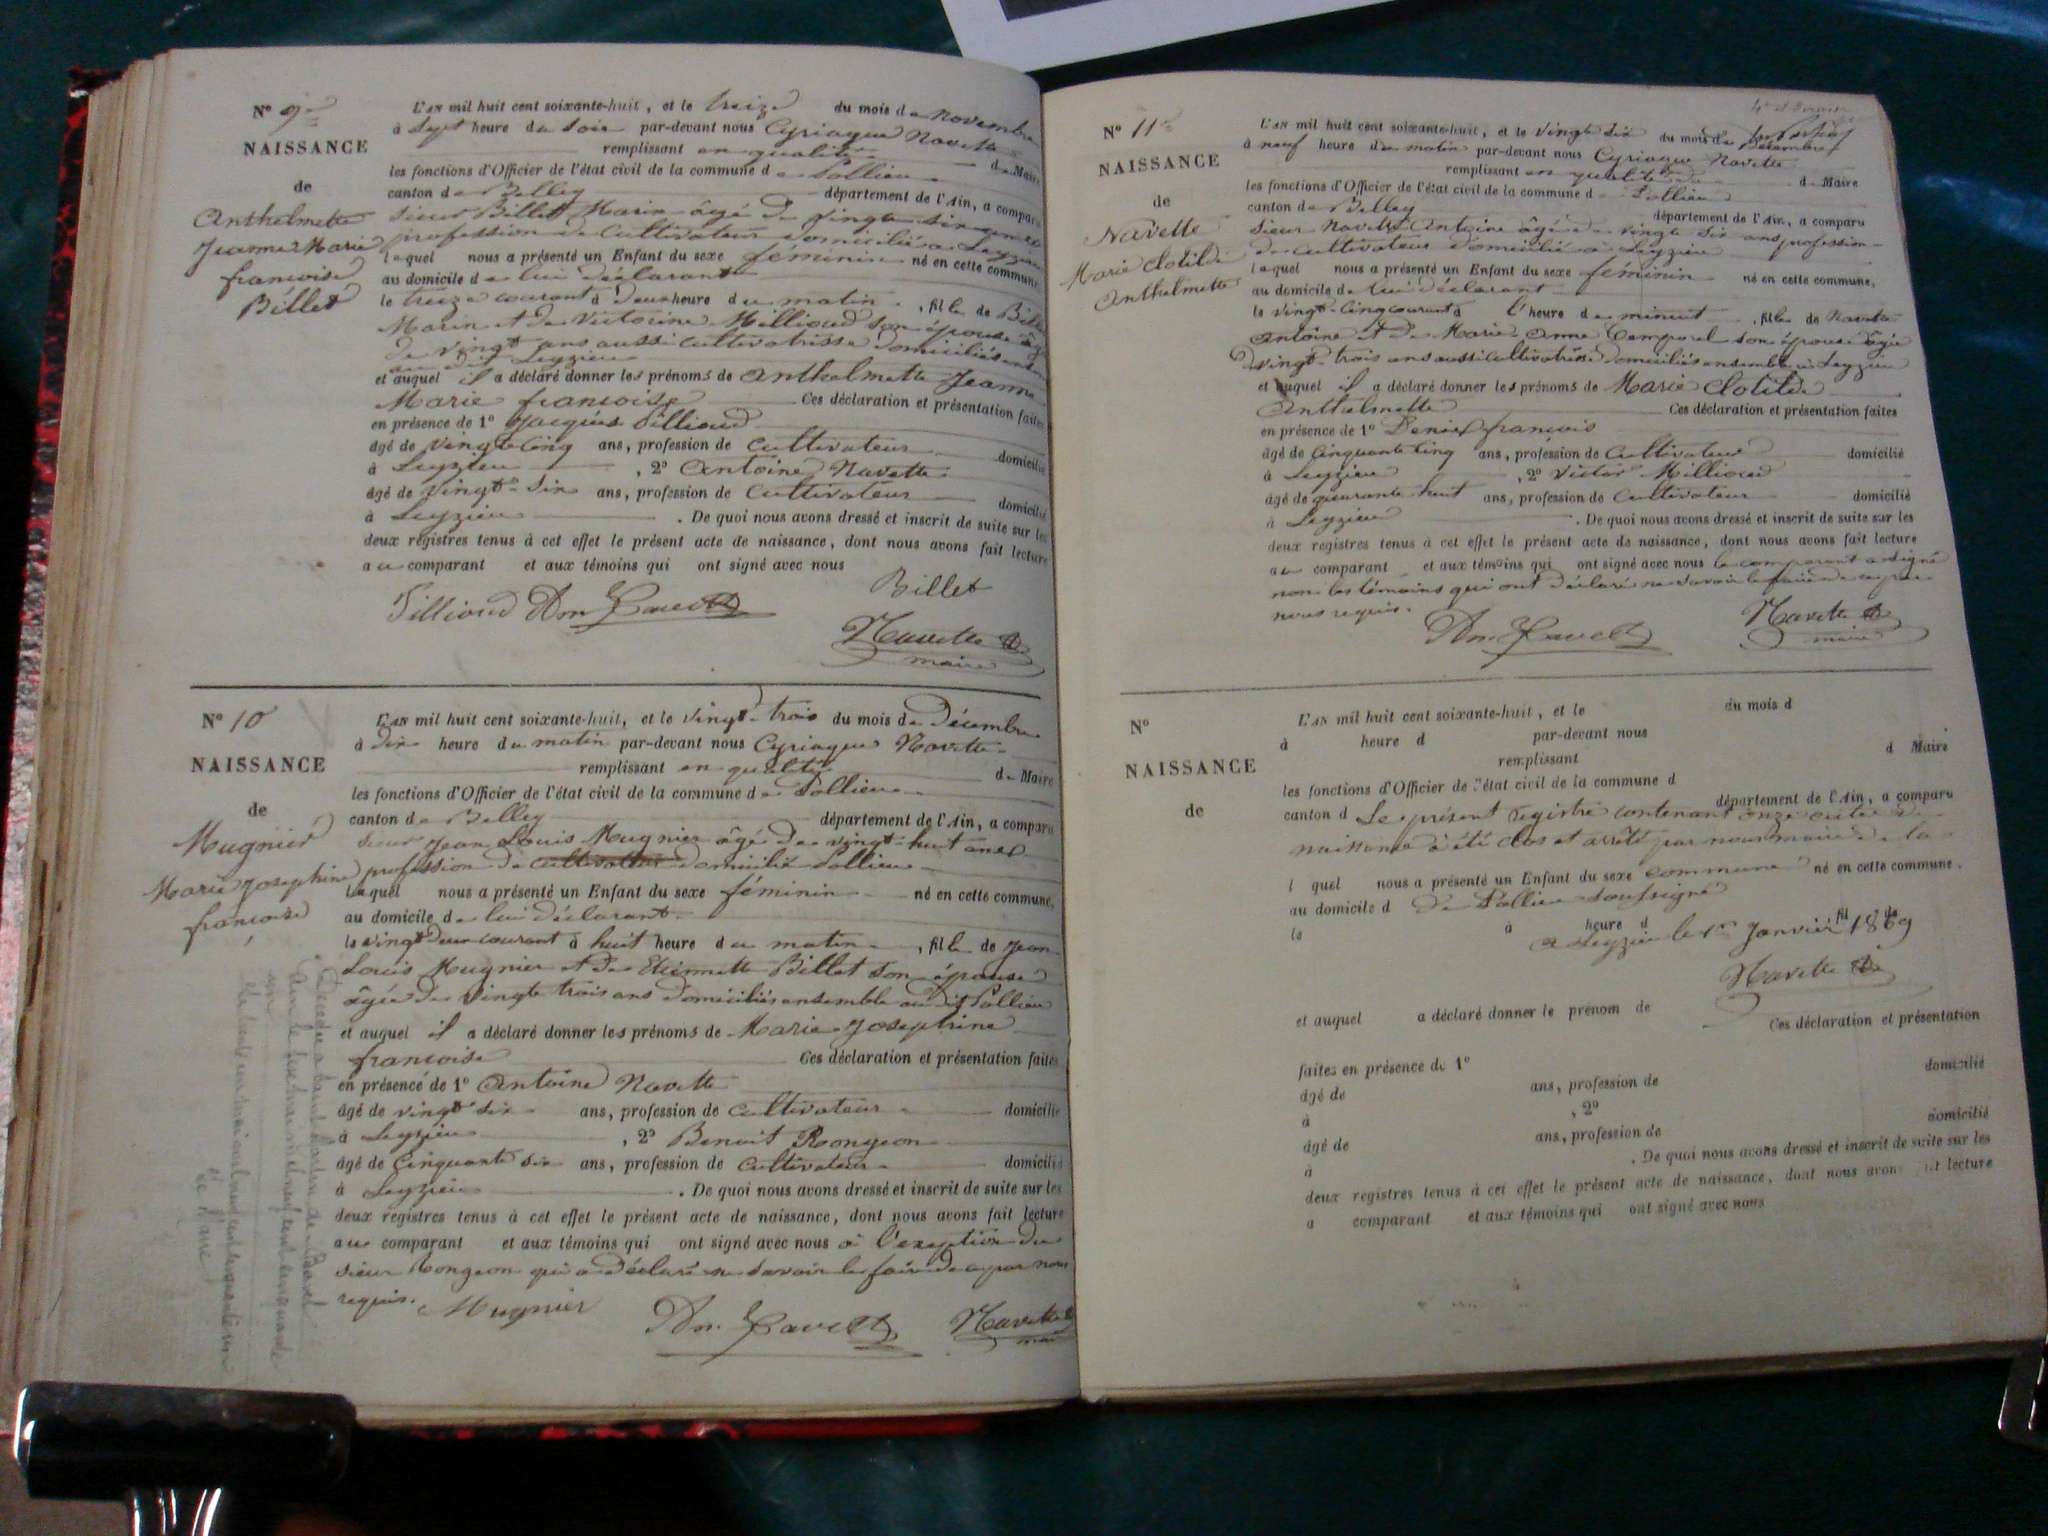 N° 9
NAISSANCE
de
Anthelmette
Jeanne Marie
françoise
Billet
L'AN mil huit cent soixante-huit, et le treize du mois de Novembre
à Sept heure du Soir par-devant nous Cyriaque Navette
remplissant en qualité de Maire
les fonctions d'Officier de l'état civil de la commune de Pollieu
canton de Belley département de l'Ain, a comparu
sieur Billet Marin âgé de vingt six ans
profession de Cultivateur domicilié à Leyzieu
lequel nous a présenté un Enfant du sexe féminin né en cette commune
au domicile de lui déclarant
le treize courant à deux heure du matin, fille de Billet
Marin et de Victorine Millioud son épouse âgé
de vingt ans aussi cultivatrisse domiciliés
au dit Leyzieu
et auquel il a déclaré donner les prénoms de Anthelmette Jeanne
Marie françoise Ces déclaration et présentation faites
en présence de 1° Jacques Pillioud
âgé de vingt cinq ans, profession de Cultivateur domicilié
à Leyzieu, 2° Antoine Navette
âgé de vingt-six ans, profession de Cultivateur domicilié
à Leyzieu. De quoi nous avons dressé et inscrit de suite sur les
deux registres tenus à cet effet le présent acte de naissance, dont nous avons fait lecture
au comparant et aux témoins qui ont signé avec nous
Billet
Pillioud
Navette
maire
N° 10
NAISSANCE
de
Mugnier
Marie Josephine
françoise
L'AN mil huit cent soixante-huit, et le vingt-trois du mois de Décembre
à dix heure du matin par-devant nous Cyriaque Navette
remplissant en qualité de Maire
les fonctions d'Officier de l'état civil de la commune de Pollieu
canton de Belley département de l'Ain, a comparu
sieur Jean Louis Mugnier âgé de vingt-huit ans
profession de cultivateur domicilié Pollieu
lequel nous a présenté un Enfant du sexe féminin né en cette commune,
au domicile de lui déclarant
le vingt deux courant à huit heure du matin, fille de Jean
Louis Mugnier et de Etiennette Billet son épouse
âgée de vingt trois ans domiciliés ensemble au dit Pollieu
et auquel il a déclaré donner les prénoms de Marie Josephine
françoise Ces déclaration et présentation faites
en présence de 1° Antoine Navette
âgé de vingt six ans, profession de cultivateur domicilié
à Leyzieu, 2° Benoit Rongeon
âgé de Cinquante six ans, profession de cultivateur domicilié
à Leyzieu. De quoi nous avons dressé et inscrit de suite sur les
deux registres tenus à cet effet le présent acte de naissance, dont nous avons fait lecture
au comparant et aux témoins qui ont signé avec nous à l'exeption du
sieur Rongeon qui a déclaré ne savoir le faire de ce par nous
requis. Mugnier
Navette
maire
N° 11
NAISSANCE
de
Navette
Marie Clotilde
Anthelmette
L'AN mil huit cent soixante-huit, et le vingt six du mois de Décembre
à neuf heure du matin par-devant nous Cyriaque Navette
remplissant en qualité de Maire
les fonctions d'Officier de l'état civil de la commune de Pollieu
canton de Belley département de l'Ain, a comparu
sieur Navette Antoine âgé de vingt six ans profession
de cultivateur domicilié à Leyzieu
lequel nous a présenté un Enfant du sexe féminin né en cette commune,
au domicile de lui déclarant
le vingt-cinq courant à l'heure de minuit, fille de Navette
Antoine et de Marie Anne Temporel son épouse âgée
de vingt-trois ans aussi cultivatrice domiciliés ensemble à Leyzieu
et auquel il a déclaré donner les prénoms de Marie Clotilde
Anthelmette Ces déclaration et présentation faites
en présence de 1° françois
âgé de Cinquante cinq ans, profession de Cultivateur domicilié
à Leyzieu, 2° Victor Millioud
âgé de quarante huit ans, profession de Cultivateur domicilié
à Leyzieu. De quoi nous avons dressé et inscrit de suite sur les
deux registres tenus à cet effet le présent acte de naissance, dont nous avons fait lecture
au comparant et aux témoins qui ont signé avec nous le comparant a signé
non les témoins qui ont déclaré ne savoir le faire de ce par
nous requis.
Navette
maire
N°
NAISSANCE
de
L'AN mil huit cent soixante-huit, et le du mois d
à heure d par-devant nous
remplissant d Maire
les fonctions d'Officier de l'état civil de la commune d
canton d département de l'Ain, a comparu
Le présent registre contenant onze actes de
naissance a été clos et arrêté par nous maire de la
l quel nous a présenté un Enfant du sexe commune né en cette commune.
au domicile d de Pollieu soussigné
le à heure d fil de
a Leyzieu le 1er Janvier 1869
Navette
et auquel a déclaré donner le prénom de
Ces déclaration et présentation
faites en présence de 1°
âgé de ans, profession de domicilié
à , 2°
âgé de ans, profession de domicilié
à . De quoi nous avons dressé et inscrit de suite sur les
deux registres tenus à cet effet le présent acte de naissance, dont nous avons fait lecture
a comparant et aux témoins qui ont signé avec nous